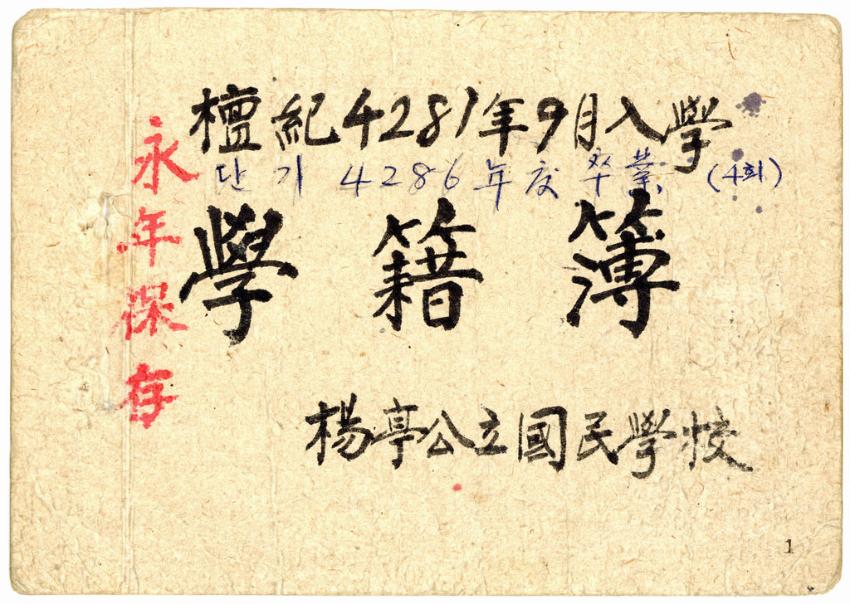 檀紀4281年9月入學
단기 4286年度 卒業 (4회)
永年保存
學籍簿
楊亭公立國民學校
1